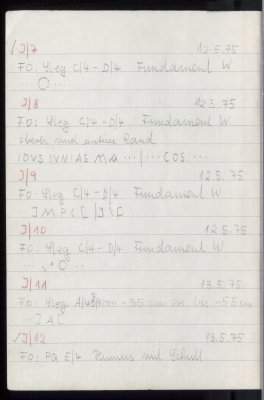 √ I/7 12.5.75
FO: Steg C/4 - D/4 Fundament W
... O ...
I/8 12.5.75
FO: Steg C/4 - D/4 Fundament W
oberer und unterer Rand
IDVS IVNIAS MA ... | ... COS ...
I/9 12.5.75
FO: Steg C/4 - D/4 Fundament W
..] M P C [ ] \ [
I/10 12.5.75
FO: Steg C/4 - D/4 Fundament W
I/11 13.5.75
FO: Steg A/4 von -35 cm bis -55 cm
..] A [
√ I/12 13.5.75
FO: PQ E/4 Humus mit Schutt